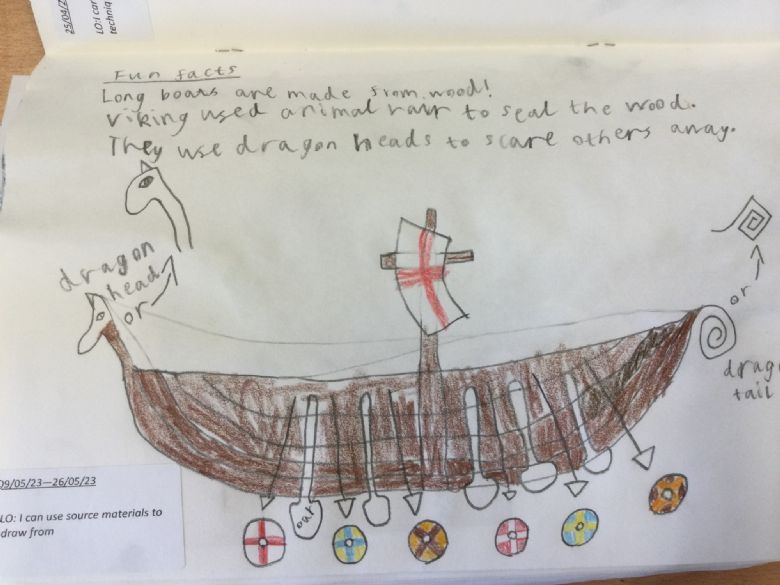 25/04/2
LO: I can
techniq
Fun facts
Long boats are made from wood!
Viking used animal hair to seal the wood.
They use dragon heads to scare others away.
dragon
head
or
or
drag
tail
oar
09/05/23—26/05/23
LO: I can use source materials to
draw from